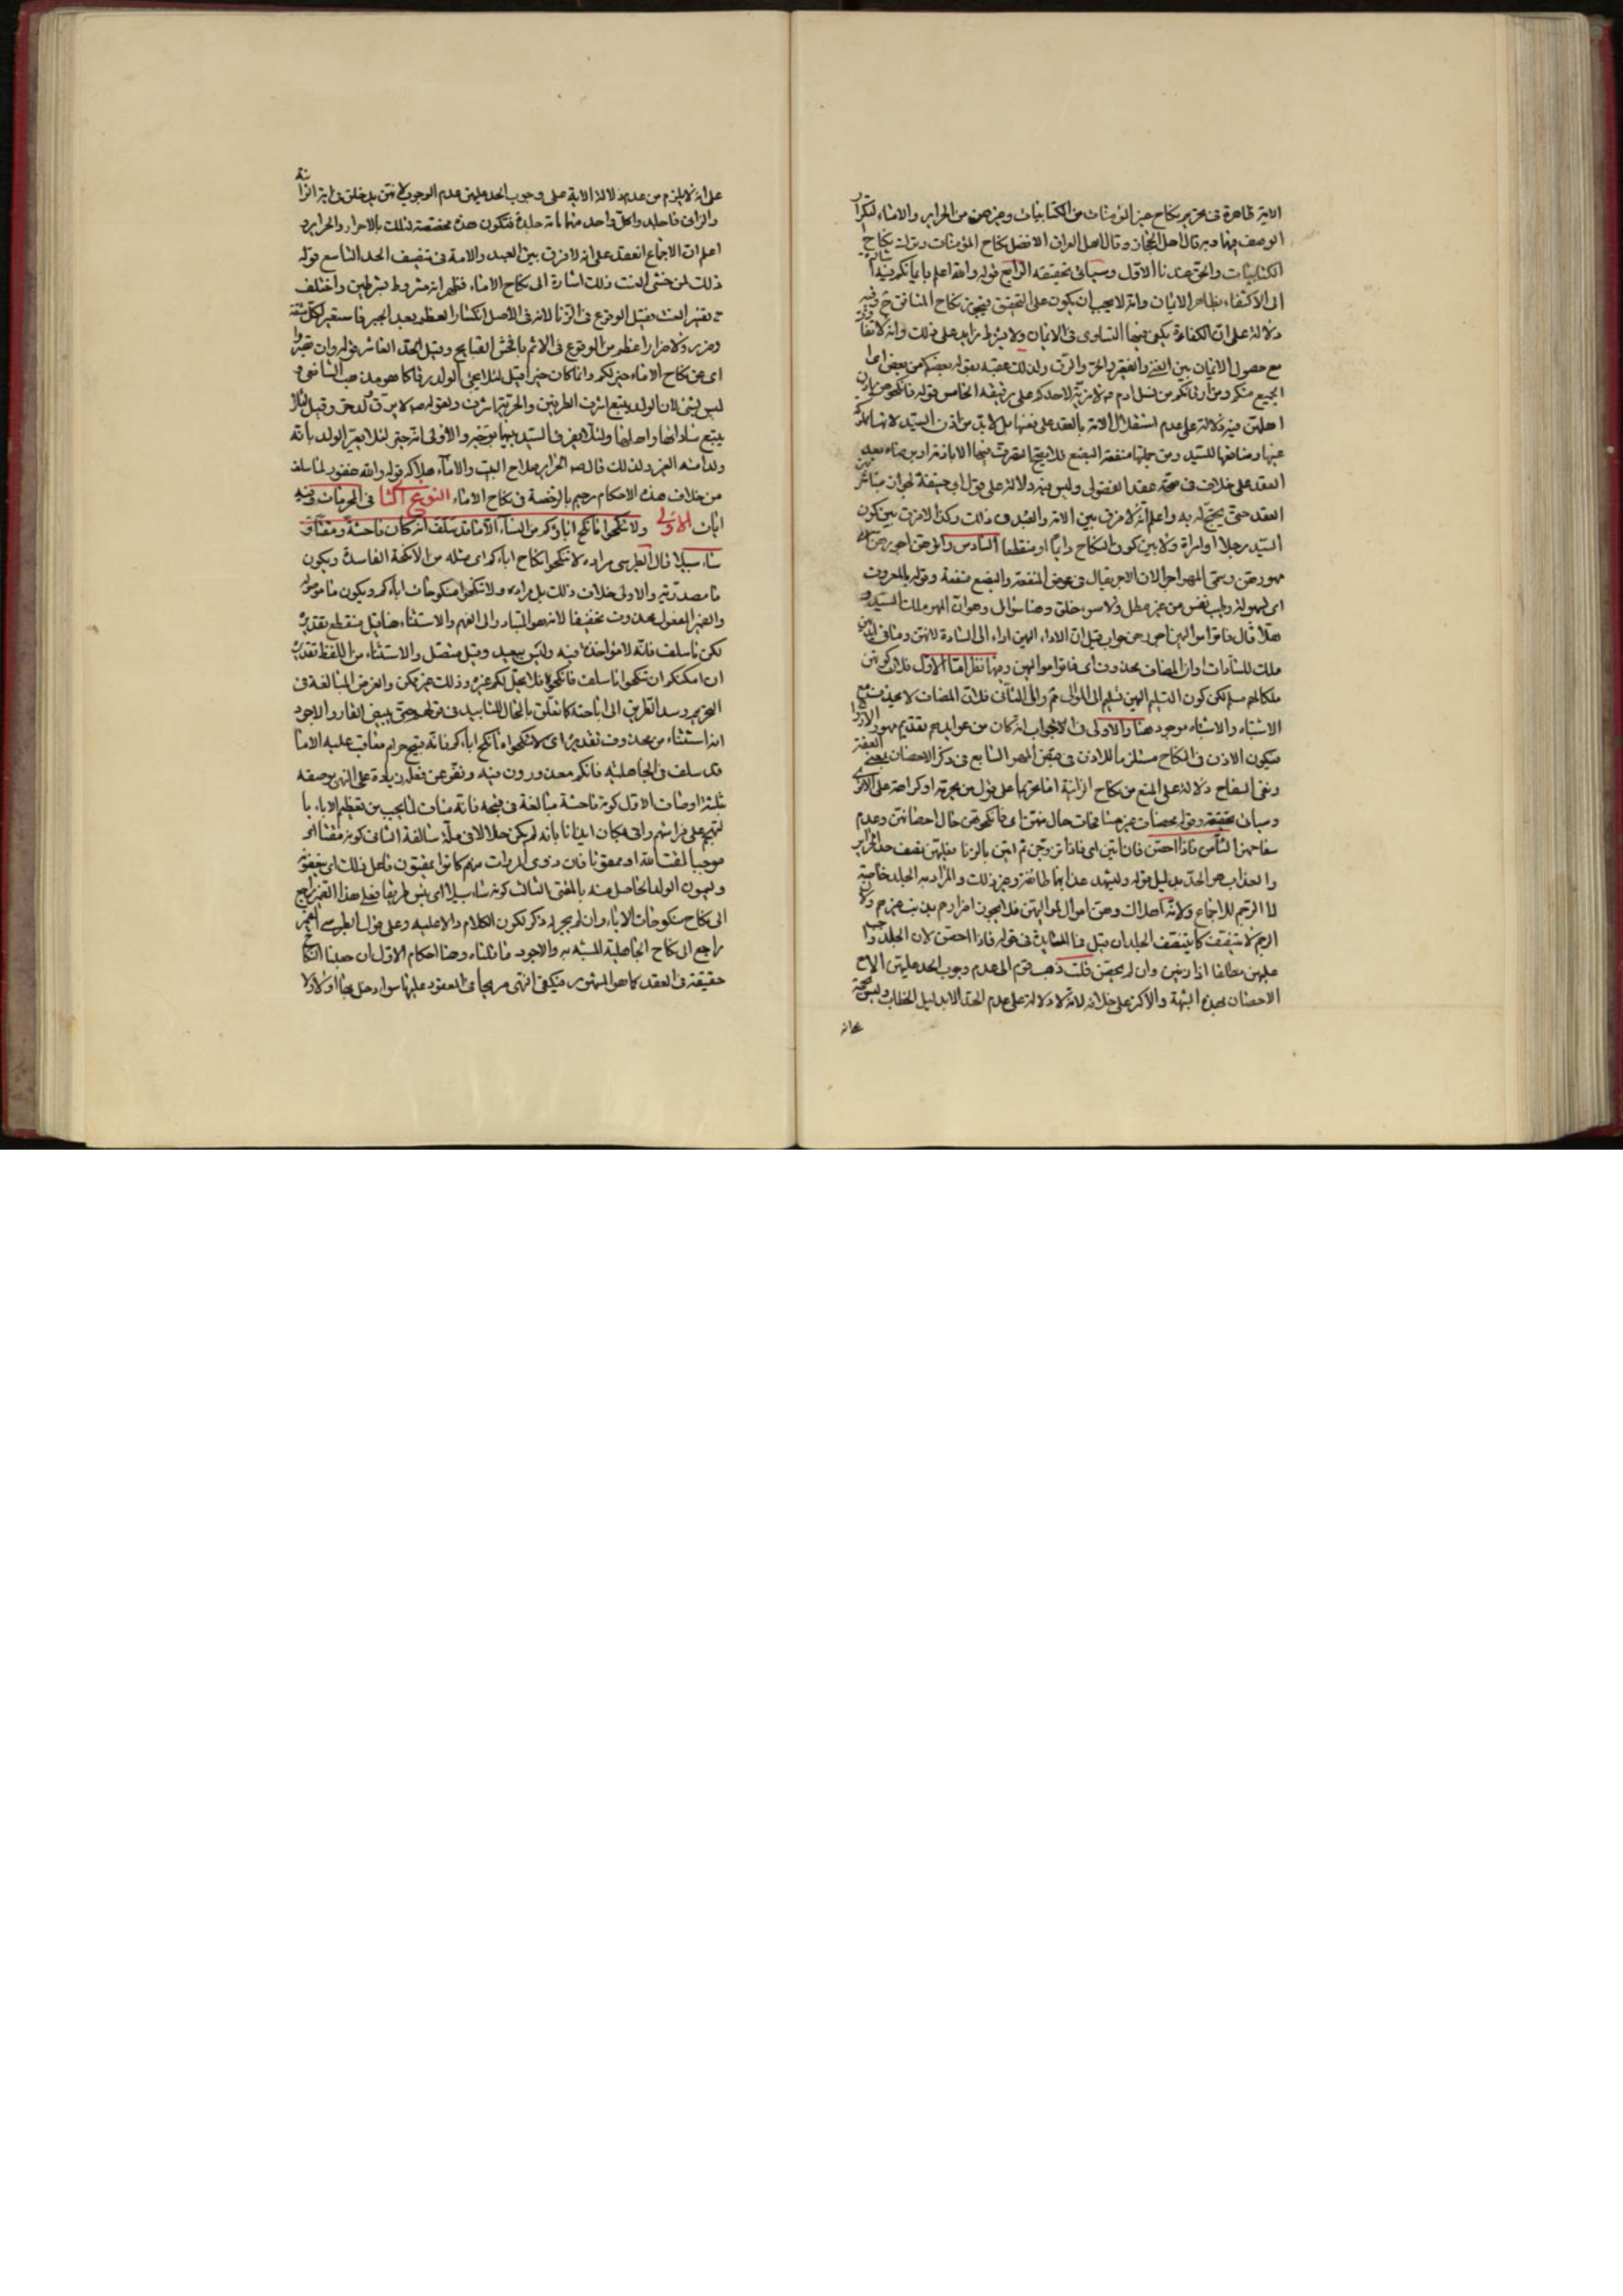 الاية ظاهرة فى تحريم نكاح غير المؤمنات من الكتابيات وغيرهن من الحراير والاماء لتكرار
الوصف فيها وبه قال اهل الحجاز وقال اهل العراق الافضل نكاح المؤمنات وترك نكاح
الكتابيات والحق عندنا الاول وسياتى تحقيقه الرابع قوله والله اعلم بايمانكم فيه اشارة
الى الاكتفاء بظاهر الايمان وانه لا يجب ان يكون على التحقيق فيجوز نكاح المنافق ح وفيه
دلالة على ان الكفاءة يكفى فيها التساوى فى الايمان ولا يشترط زايد على ذلك وانه لا تفاوت
مع حصول الايمان بين الغنى والفقير والحر والرق ولذلك عقبه بقوله بعضكم من بعض اى
الجميع منكم ومن ارقائكم من نسل ادم ع لا مزية لاحدكم على رقيقه الخامس قوله فانكحوهن باذن
اهلهن فيه دلالة على عدم استقلال الامة بالعقد على نفسها بل لا بد من اذن السيد لانه مالك
عينها ومنافعها للسيد ومن جملتها منفعة البضع فلا يقبح التصرف فيها الا باذنه او برضاه بعد
العقد على خلاف فى صحة عقد الفضولى وليس فيه دلالة على قول ابو حنيفة لهن ان تباشرن
العقد حتى يحتج له به واعلم انه لا فرق بين الامة والعبد فى ذلك وكذا لا فرق بين كون
السيد رجلا او امراة ولا بين كون النكاح دايما او منقطعا السادس واتوهن اجورهن اى
مهورهن وسمى المهر اجرا لان الاجر يقال فى عوض المنفعة والبضع منفعة وقوله بالمعروف
اى بسهولة وطيب نفس من غير مطل ولا سوء خلق وهنا سؤال وهو ان المهر ملك السيد و
هذا قال فاتوا مواليهن اجورهن جواب قيل ان الاداء اليهن اداء الى السادة لانهن وما فى ايديهن
ملك للسادات او ان المضاف محذوف اى فاتوا مواليهن وفيها نظر اما الاول فلان كونهن
ملكا لهم مسلم لكن كون التسليم اليهن تسليم الى الموالى ثم واما الثانى فلان المضاف لا يحذف مع
الاشتباه والاشتباه موجود هنا والاولى فى الاجواب انه كان من عوايدهم تقديم مهور الازواج
فيكون الاذن فى النكاح مستلزما للاذن فى قبض المهر السابع فى ذكر الاحصان بمعنى العفة
ونفى السفاح دلالة على المنع من نكاح الزانية اما تحريما على قول من يحرمه او كراهة على الاخرى
وسياتى تحقيقه وقوله محصنات غير مسافحات حال منهن اى فانكحوهن حال احصانهن وعدم
سفاحهن الثامن فاذا احصن فان اتين اى فاذا تزوجن ثم اتين بالزنا فعليهن نصف حد الحراير
والعذاب هو الحد بدليل قوله وليشهد عذابهما طائفة وغير ذلك والمراد به الجلد خاصة
لا الرجم للاجماع ولانه اهلاك وهن اموال لمواليهن فلا يجوز اضرارهم بذنب غيرهم ولان
الرجم لا يتنصف كما يتنصف الجلد ان قيل فما الفايدة فى قوله فاذا احصن لان الجلد واجب
عليهن مطلقا اذا زنين وان لم يحصن قلت ذهب قوم الى عدم وجوب الحد عليهن الا مع
الاحصان بهذه الشبهة والاكثر على خلافه لانه لا دلالة على عدم الحد الا بدليل الخطاب وليس بحجة
على انه
على انه لا يلزم من عدم دلالة الاية على وجوب الحد عليهن عدم الوجوب لانهن يدخلن فى اية الزانية
والزانى فاجلدوا كل واحد منهما مائة جلدة فتكون هذه مخصصة لتلك بالاحرار والحراير و
اعلم ان الاجماع انعقد على انه لا فرق بين العبد والامة فى تنصيف الحد التاسع قوله
ذلك لمن خشى العنت ذلك اشارة الى نكاح الاماء فظهر انه مشروط بشرطين واختلف
فى تفسير العنت فقيل الوقوع فى الزنا لانه فى الاصل انكسار العظم بعد الجبر فاستعير لكل مشقة
وضرر ولا ضرار اعظم من الوقوع فى الاثم بافحش القبايح وقيل الحد العاشر قوله وان تصبروا
اى عن نكاح الاماء خير لكم وانما كان خيرا قيل لئلا يجئ الولد رقا كما هو مذهب الشافعى و
ليس بشئ لان الولد يتبع اشرف الطرفين والحرية اشرف ولقوله ص لا يرق ولد حر وقيل لئلا
ولدا منه العير ولذلك قال ص الحراير صلاح البيت والاماء هلاكه قوله والله غفور لما سلف
من خلاف هذه الاحكام رحيم بالرخصة فى نكاح الاماء النوع الثا فى المحرمات وفيه
ايات الاولى ولا تنكحوا ما نكح اباؤكم من النساء الا ما قد سلف انه كان فاحشة ومقتا و
ساء سبيلا قال الطبرسى مراده لا تنكحوا نكاح ابائكم اى مثله من الانكحة الفاسدة ويكون
ما مصدرية والاولى خلاف ذلك بل مراده ولا تنكحوا منكوحات ابائكم ويكون ما موصولة
والضمير المفعول محذوف تخفيفا لانه هو المتبادر الى الفهم والاستثناء هنا قيل منقطع تقديره
لكن ما سلف فانه لا مؤاخذة فيه وليس ببعيد وقيل متصل والاستثناء من اللفظ تقديره
ان امكنكم ان تنكحوا ما سلف فانكحوه فلا يحل لكم غيره وذلك غير ممكن والغرض المبالغة فى
التحريم وسد الطريق الى اباحته كما تعلق بالمحال للتابيد فى قولهم حتى يبيض القار والاجود
انه استثناء من محذوف تقديره اى لا تنكحوا ما نكح اباؤكم فانه قبيح حرام معاقب عليه الا ما
قد سلف فى الجاهلية فانكم معذورون فيه ونفر عن فعله زيادة على النهى بوصفه
بثلثة اوصاف الاول كونه فاحشة مبالغة فى قبحه فانه مناف لما يجب من تعظيم الاباء با
لتهجم على فراشهم واتى بكان ايذانا بانه لم يكن حلالا فى ملة سالفة الثانى كونه مقتا اى
موجبا لمقت الله او ممقوتا فان ذوى المروات منهم كانوا يمقتون فاعل ذلك اى يبغضونه
ويسمون الولد الحاصل منه بالمقتى الثالث كونه ساء سبيلا اى بئس طريقا فعلى هذا الضمير راجع
الى نكاح منكوحات الاباء وان لم يجر له ذكر لكون الكلام دالا عليه وعلى قول الطبرسى الضمير
راجع الى نكاح الجاهلية المشبه به والاجود ما قلناه وهنا احكام الاول ان جعلنا النكاح
حقيقة فى العقد كما هو المشهور فيكفى النهى صريحا فى المعقود عليها سواء دخل بها او لا ولا